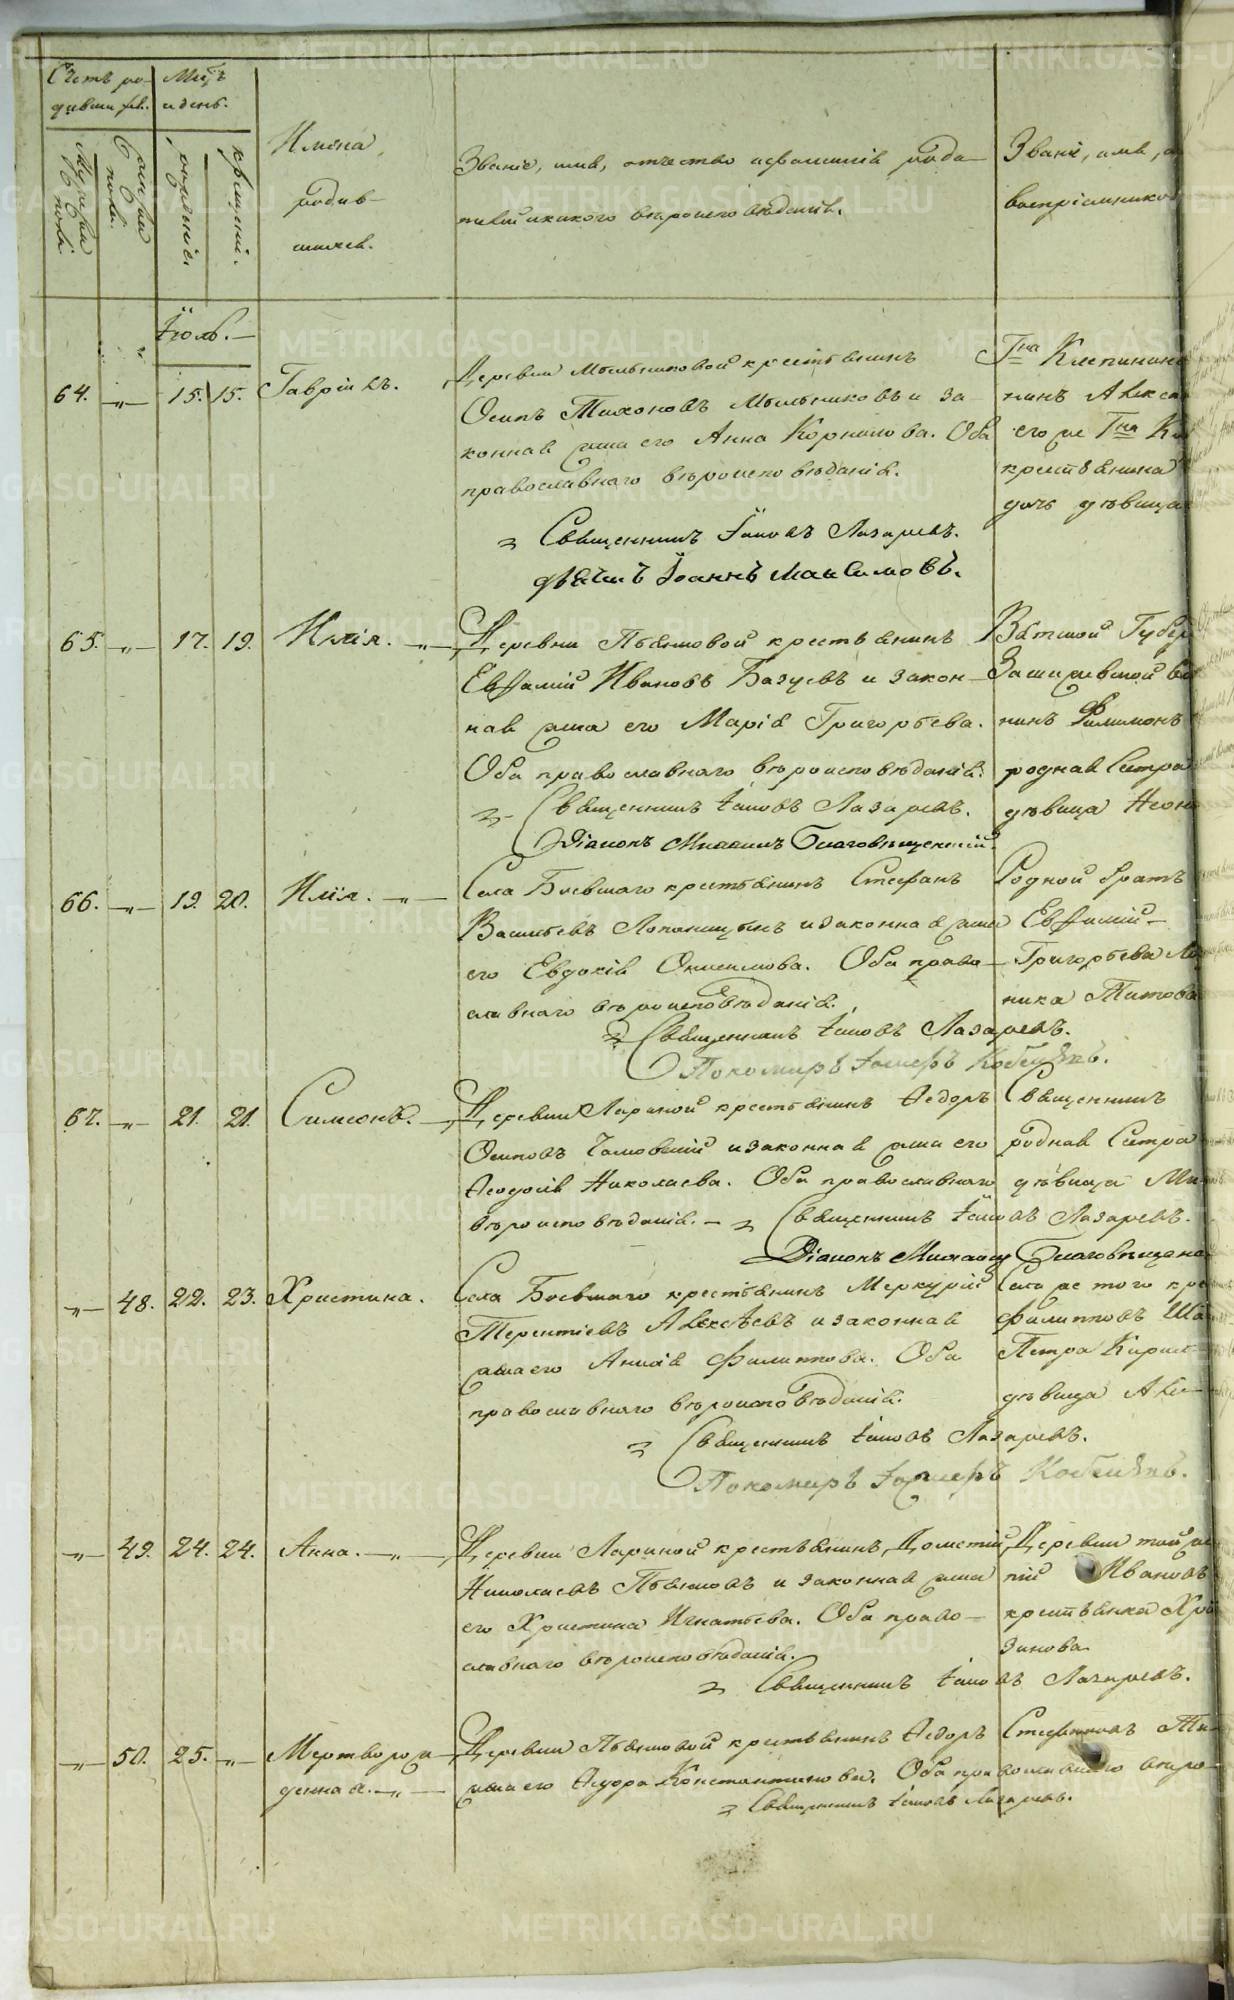 Счетъ ро-
дившихся.
Мѣсяцъ
и день.
Мужеска
пола
женска
пола.
рожденія
крещенія.
Имена
родив-
шихся.
Званіе, имя, отчество и фамилія роди-
телей и какого вѣроисповѣданія.
Званіе, имя, о
воспріемниковъ
Іюль.
64. -„- 15. 15. Гавріилъ.
Деревни Мыльниковой крестьянинъ
Осипъ Тихоновъ Мыльниковъ и за-
конная жена его Анна Корнилова. Оба
православнаго вѣроисповѣданія.
Священникъ Іаковъ Лазаревъ.
дьячикъ Іоаннъ Максимовъ.
Гна Клепинина
нинъ Алекса
его же Гна Кле
крестьянина
дочь дѣвица
65. -„- 17. 19. Илія. -„-
Деревни Пьянковой крестьянинъ
Евфимій Ивановъ Базуевъ и закон-
ная жена его Марія Григорьева.
Оба православнаго вѣроисповѣданія.
Священникъ Іаковъ Лазаревъ.
Діаконъ Михаилъ Благовѣщенскій.
Вятской Губер
нинъ Филимонъ
родная Сестра
дѣвица
66. -„- 19. 20. Илія. -„-
Села Боевскаго крестьянинъ Стефанъ
Васильевъ и законная жена
его Евдокія Онисимова. Оба право-
славнаго вѣроисповѣданія.
Священникъ Іаковъ Лазаревъ.
Пономарь
Родной братъ
Евфимій
Григорьева
ника Титова
67. -„- 21. 21. Симеонъ. -„-
Деревни Лариной крестьянинъ Ѳедоръ
Осиповъ и законная жена его
Ѳеодосія Николаева. Оба православнаго
вѣроисповѣданія. - Священникъ Іаковъ Лазаревъ.
Діаконъ Михаилъ Благовѣщенс
Священникъ
родная Сестра
дѣвица Ма
-„- 48. 22. 23. Христина.
Села Боевскаго крестьянинъ Меркурій
Терентіевъ Алексѣевъ и законная
жена его Анисія Филиппова. Оба
православнаго вѣроисповѣданія.
Священникъ Іаковъ Лазаревъ.
Пономарь
Села же того кре
Филипповъ Ша
Петра Кирил
дѣвица
-„- 49. 24. 24. Анна. -„-
Деревни Лариной крестьянинъ Дометій
Николаевъ Пьянковъ и законная жена
его Христина Игнатьева. Оба право-
славнаго вѣроисповѣданія.
Священникъ Іаковъ Лазаревъ.
Деревни той же
Ивановъ
крестьянка Хри
зинова
-„- 50. 25. -„- Мертворож
денная. -„-
Деревни Пьянковой крестьянинъ Ѳедоръ Стефановъ
жена его Ѳедора Константинова. Оба православнаго вѣро-
Священникъ Іаковъ Лазаревъ.
METRIKI.GASO-URAL.RU